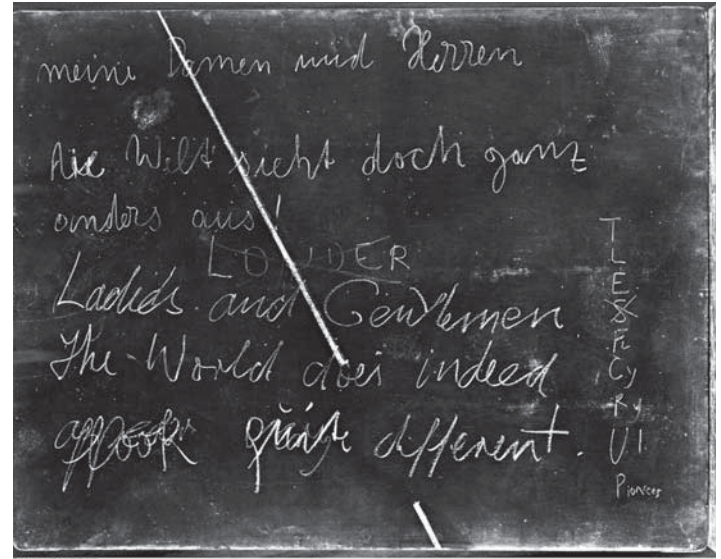 meine Damen und Herren
die Welt sieht doch ganz
anders aus!
LOUDER
Ladies and Gentlemen
The World does indeed
different.
T
L
E
Cy
Ry
U I
Pioneer